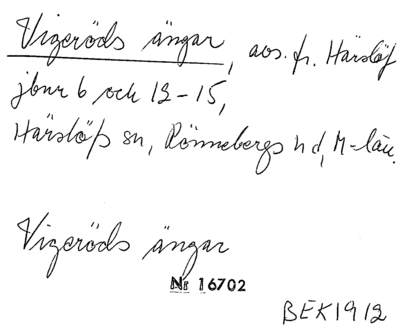 Vigeröds ängar, avs. fr. Härslöf
jbnr 6 och 12-15,
Härslöfs sn, Rönnebergs hd, M-län.
Vigeröds ängar
Nr 16702
BEK1912